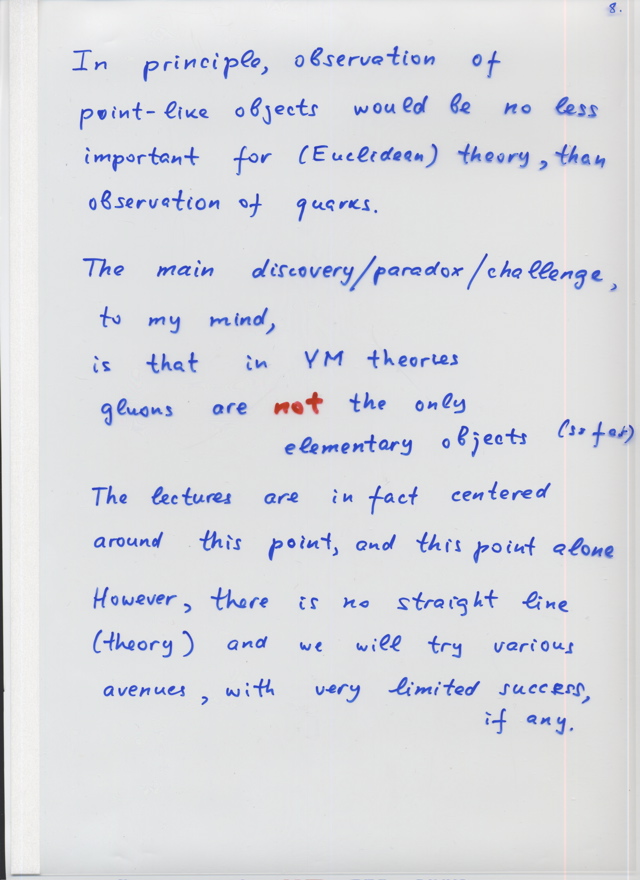 8.
In principle, observation of
point-like objects would be no less
important for (Euclidean) theory, than
observation of quarks.
The main discovery/paradox/challenge,
to my mind,
is that in YM theories
gluons are not the only
elementary objects (so far)
The lectures are in fact centered
around this point, and this point alone
However, there is no straight line
(theory) and we will try various
avenues, with very limited success,
if any.